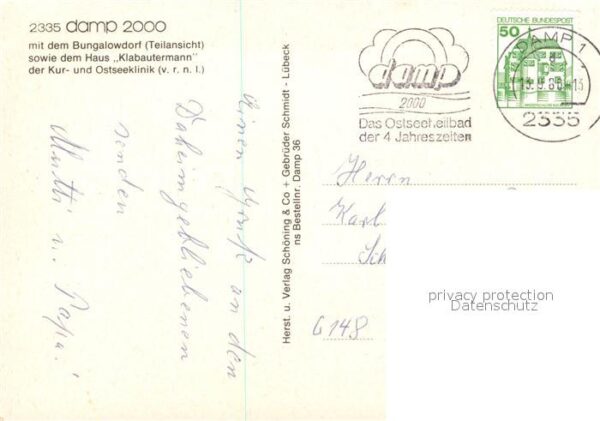 2335 damp 2000
mit dem Bungalowdorf (Teilansicht)
sowie dem Haus „Klabautermann"
der Kur- und Ostseeklinik (v. r. n. l.)
Einen Gruß an den
Daheimgebliebenen
senden
Mutti u. Papa!
Herst. u. Verlag Schöning & Co + Gebrüder Schmidt - Lübeck
ns Bestellnr. Damp 36
damp
2000
Das Ostseeheilbad
der 4 Jahreszeiten
DEUTSCHE BUNDESPOST
50
DAMP 1
2335
Herrn
Karl
Sch
G 148
privacy protection
Datenschutz